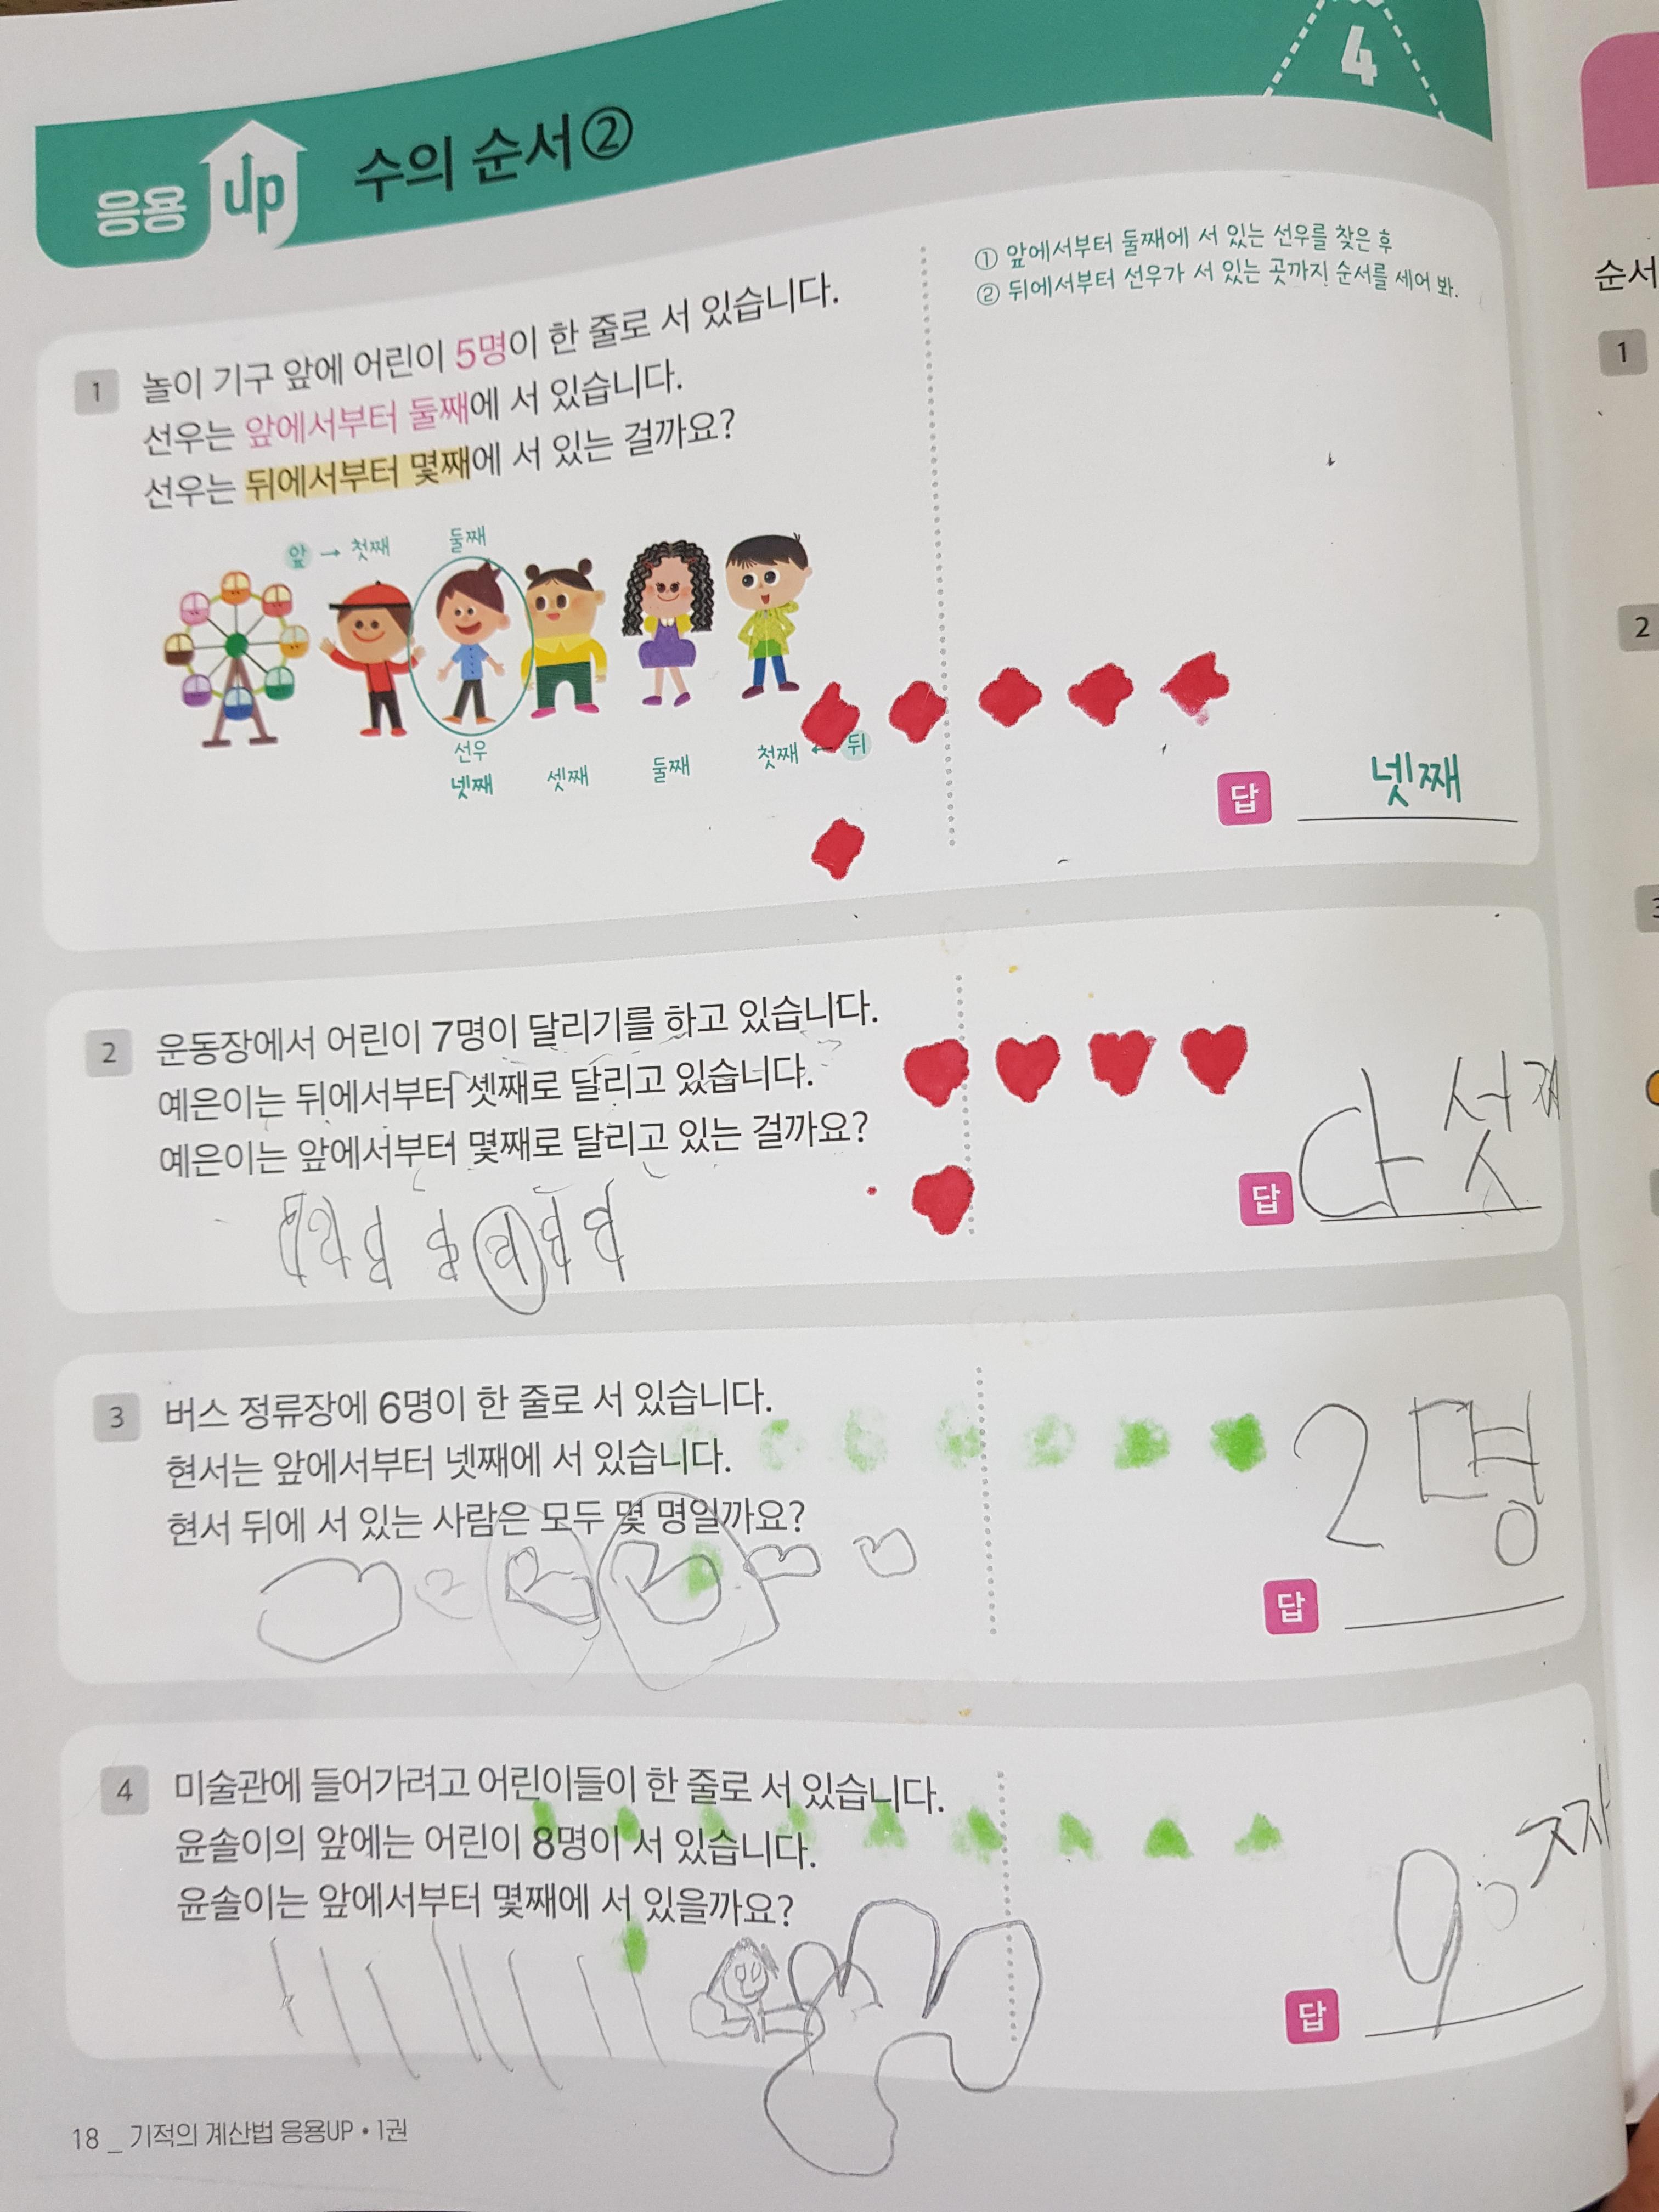 4
응용 up 수의 순서②
① 앞에서부터 둘째에 서 있는 선우를 찾은 후
② 뒤에서부터 선우가 서 있는 곳까지 순서를 세어 봐.
1 놀이 기구 앞에 어린이 5명이 한 줄로 서 있습니다.
선우는 앞에서부터 둘째에 서 있습니다.
선우는 뒤에서부터 몇째에 서 있는 걸까요?
앞 → 첫째 둘째
선우
넷째 셋째 둘째 첫째 ← 뒤
답 넷째
2 운동장에서 어린이 7명이 달리기를 하고 있습니다.
예은이는 뒤에서부터 셋째로 달리고 있습니다.
예은이는 앞에서부터 몇째로 달리고 있는 걸까요?
답 다섯째
3 버스 정류장에 6명이 한 줄로 서 있습니다.
현서는 앞에서부터 넷째에 서 있습니다.
현서 뒤에 서 있는 사람은 모두 몇 명일까요?
2명
답
4 미술관에 들어가려고 어린이들이 한 줄로 서 있습니다.
윤솔이의 앞에는 어린이 8명이 서 있습니다.
윤솔이는 앞에서부터 몇째에 서 있을까요?
답 9
18 _ 기적의 계산법 응용UP • 1권
순서
1
2
3